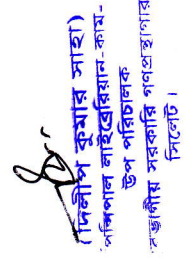 (দিলীপ কুমার সাহা)
প্রিন্সিপাল লাইব্রেরিয়ান-কাম-
উপ পরিচালক
বিভাগীয় সরকারি গণগ্রন্থাগার
সিলেট।